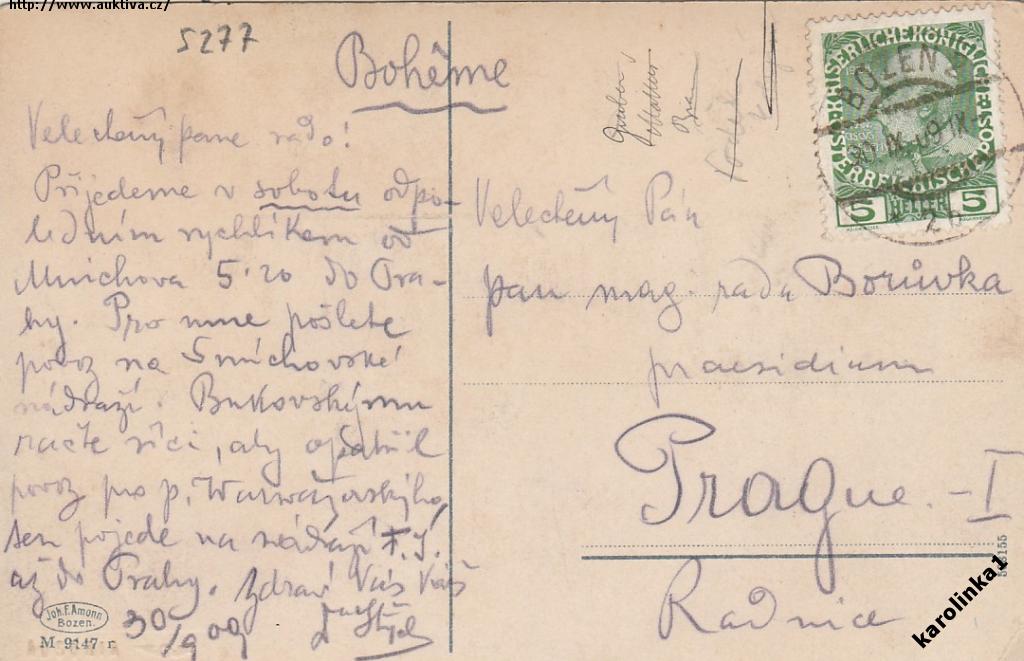 http://www.auktiva.cz/
5277
Bohême
Velectěný pane rado!
Přijedeme v sobotu odpo-
ledním rychlíkem od
Mnichova 5.20 do Pra-
hy. Pro mne pošlete
povoz na Smíchovské
nádraží. Bukovskému
račte říci, aby opatřil
povoz pro p.
ten pojede na nádraží F. J.
až do Prahy. Zdraví Vás Váš
30/9 09
Joh. F. Amonn
Bozen.
M 9147 r
KAISERLICHE KÖNIGLICHE ÖSTERREICHISCHE POST
5 HELLER 5
BOZEN 2
30 IX 09
Velectěný Pán
pan mag. rada Borůvka
praesidium
Prague - I
Radnice
karolinka1